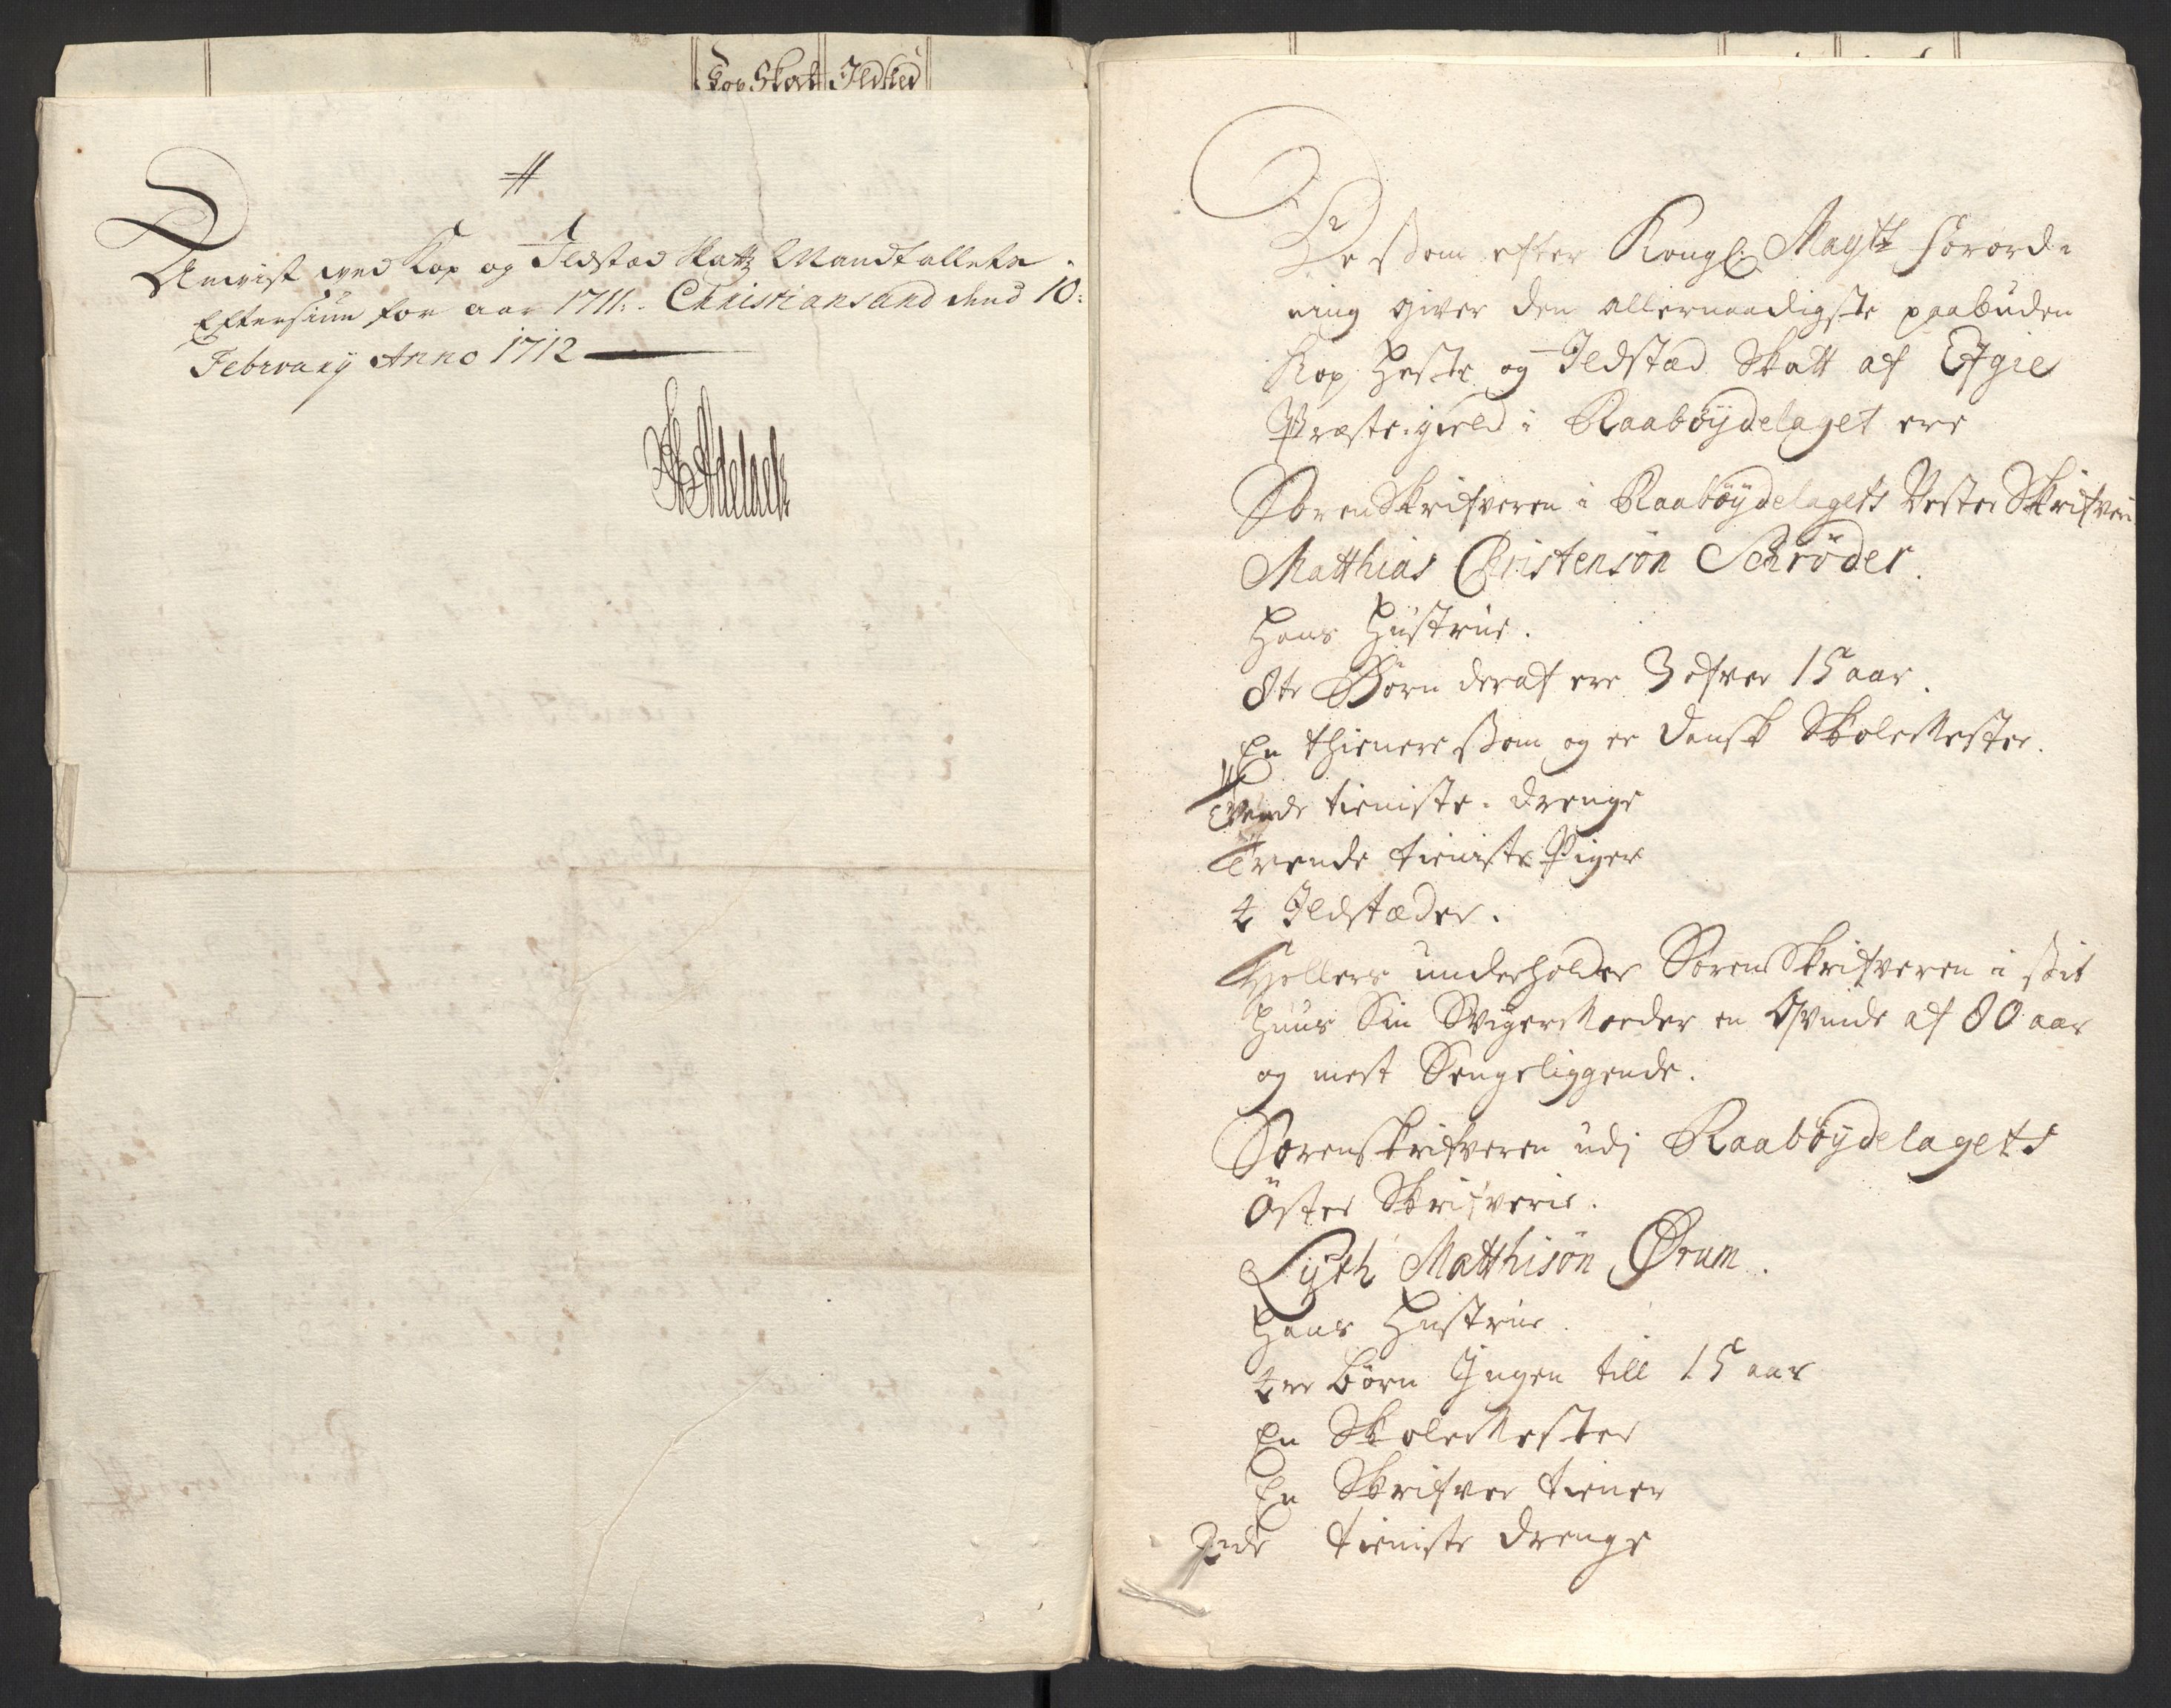 Kop Skat Ildsted
#
Anvist ved Kop og Ildsted Skatz Mandtallets
Eftersiun for aar 1711:. Christiansand dend 10:
February Anno 1712
De ssom efter Kongl: Maytz forord=
ning giver den allernaadigste paabuden
Kop, Heste og Ildstæd Skatt af Efgie
Præste gield i Raabøydelaget ere
SorenSkrifveren i Raabøydelagets Vester Skrifveri
Matthias Christensøn Schrøder.
Hans Hustrue.
8te Børn deraf ere 3 ofver 15 aar.
En thienere ssom og er Dansk SkoleMester.
tieniste drenge
Trende tieniste Piger
4 Ildstæder.
Hellers underholder SorenSkrifveren i ssit
Huus Sin SvigerModer en Qvinde af 80 aar
og mest Sengeliggende.
Sorenskrifveren udj Raabøydelagets
Øster Skrifverie.
Lyth Matthisøn Ørum.
Hans Hustrue.
4re børn Ingen till 15 aar
En SkoleMester
En Skrifver tiener
2nde tieniste drenge